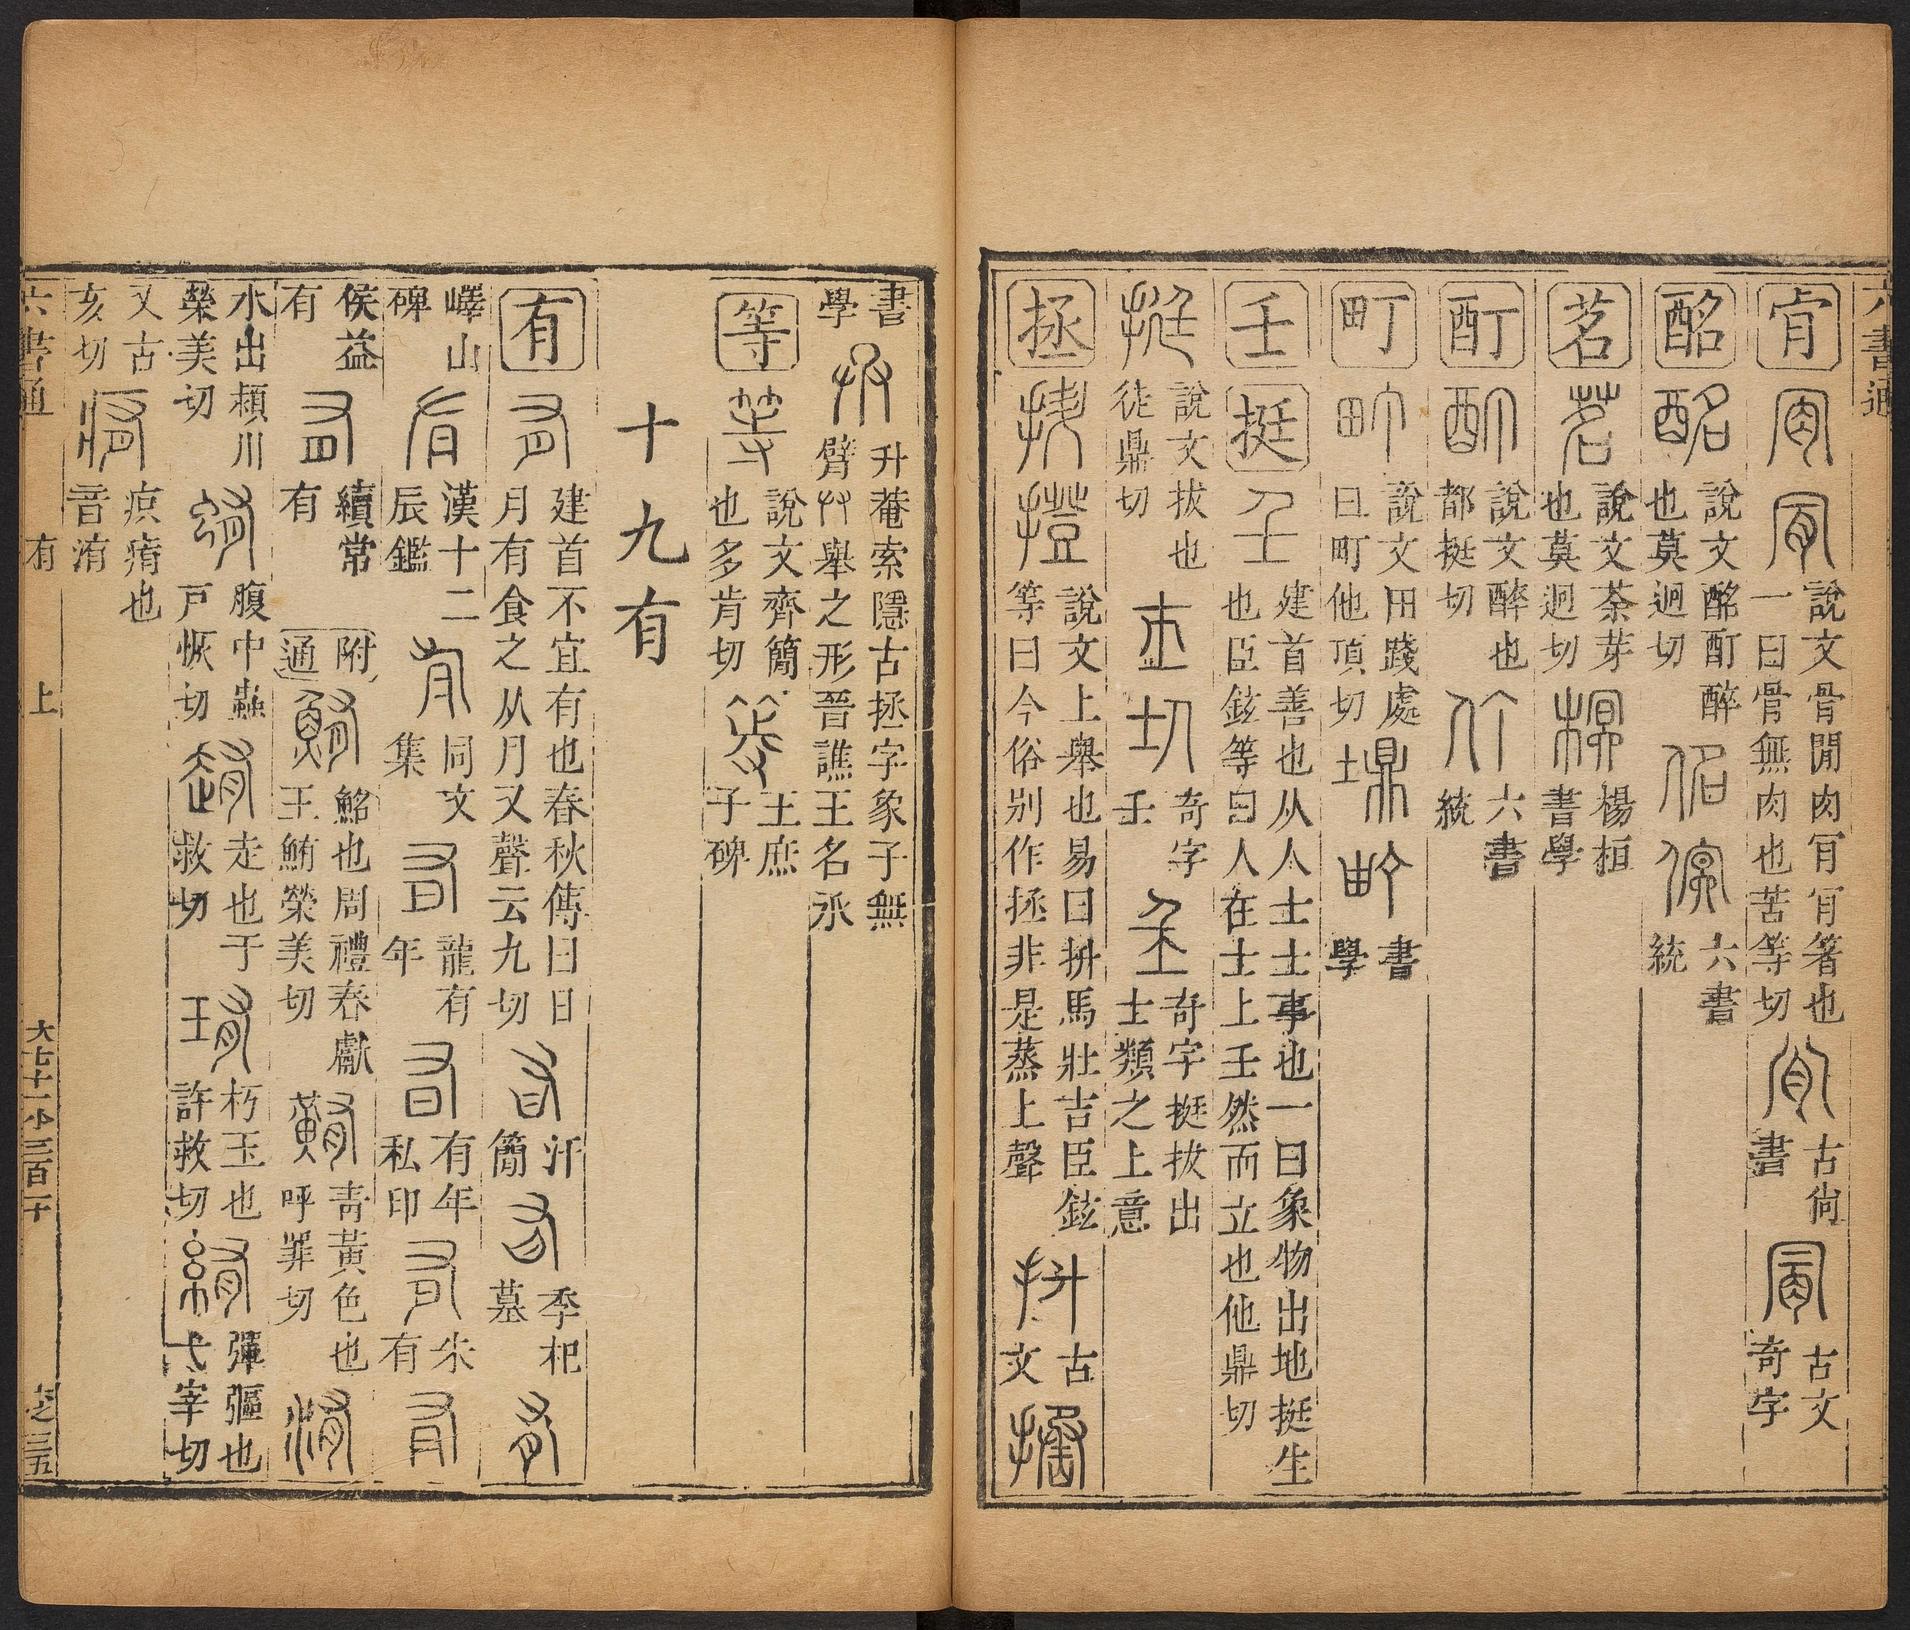 六書通
肯 說文骨閒肉肎肎箸也一曰骨無肉也苦等切 古尚書 古文奇字
酩 酩 說文酩酊醉也莫迥切 六書統
茗 茗 說文荼芽也莫迥切 楊桓書學
酊 酊 說文醉也都挺切 六書統
町 町 說文田踐處曰町他頂切 書學
壬 挺 建首善也从人士士事也一曰象物出地挺生也臣鉉等曰人在士上壬然而立也他鼎切
挺 說文拔也徒鼎切 奇字壬 奇字挺拔出士類之上意
拯 說文上舉也易曰拚馬壯吉臣鉉等曰今俗別作拯非是蒸上聲 古文
書學 升菴索隱古拯字象子無臂廾舉之形晉譙王名氶
等 說文齊簡也多肯切 王庶子碑
十九有
有 建首不宜有也春秋傳曰日月有食之从月又聲云九切 汗簡 季杞墓
嶧山碑 漢十二辰鑑 同文集 龍有年 有年私印 朱有
侯益有 續常有 附通 鮥也周禮春獻王鮪榮美切 青黃色也呼罪切
水出潁川榮美切 腹中蟲戶恢切 走也于救切 朽玉也許救切 彈彄也弋宰切
又古亥切 疻痏也音洧
六書通 有 上 大七十一小三百二十 卷之三五